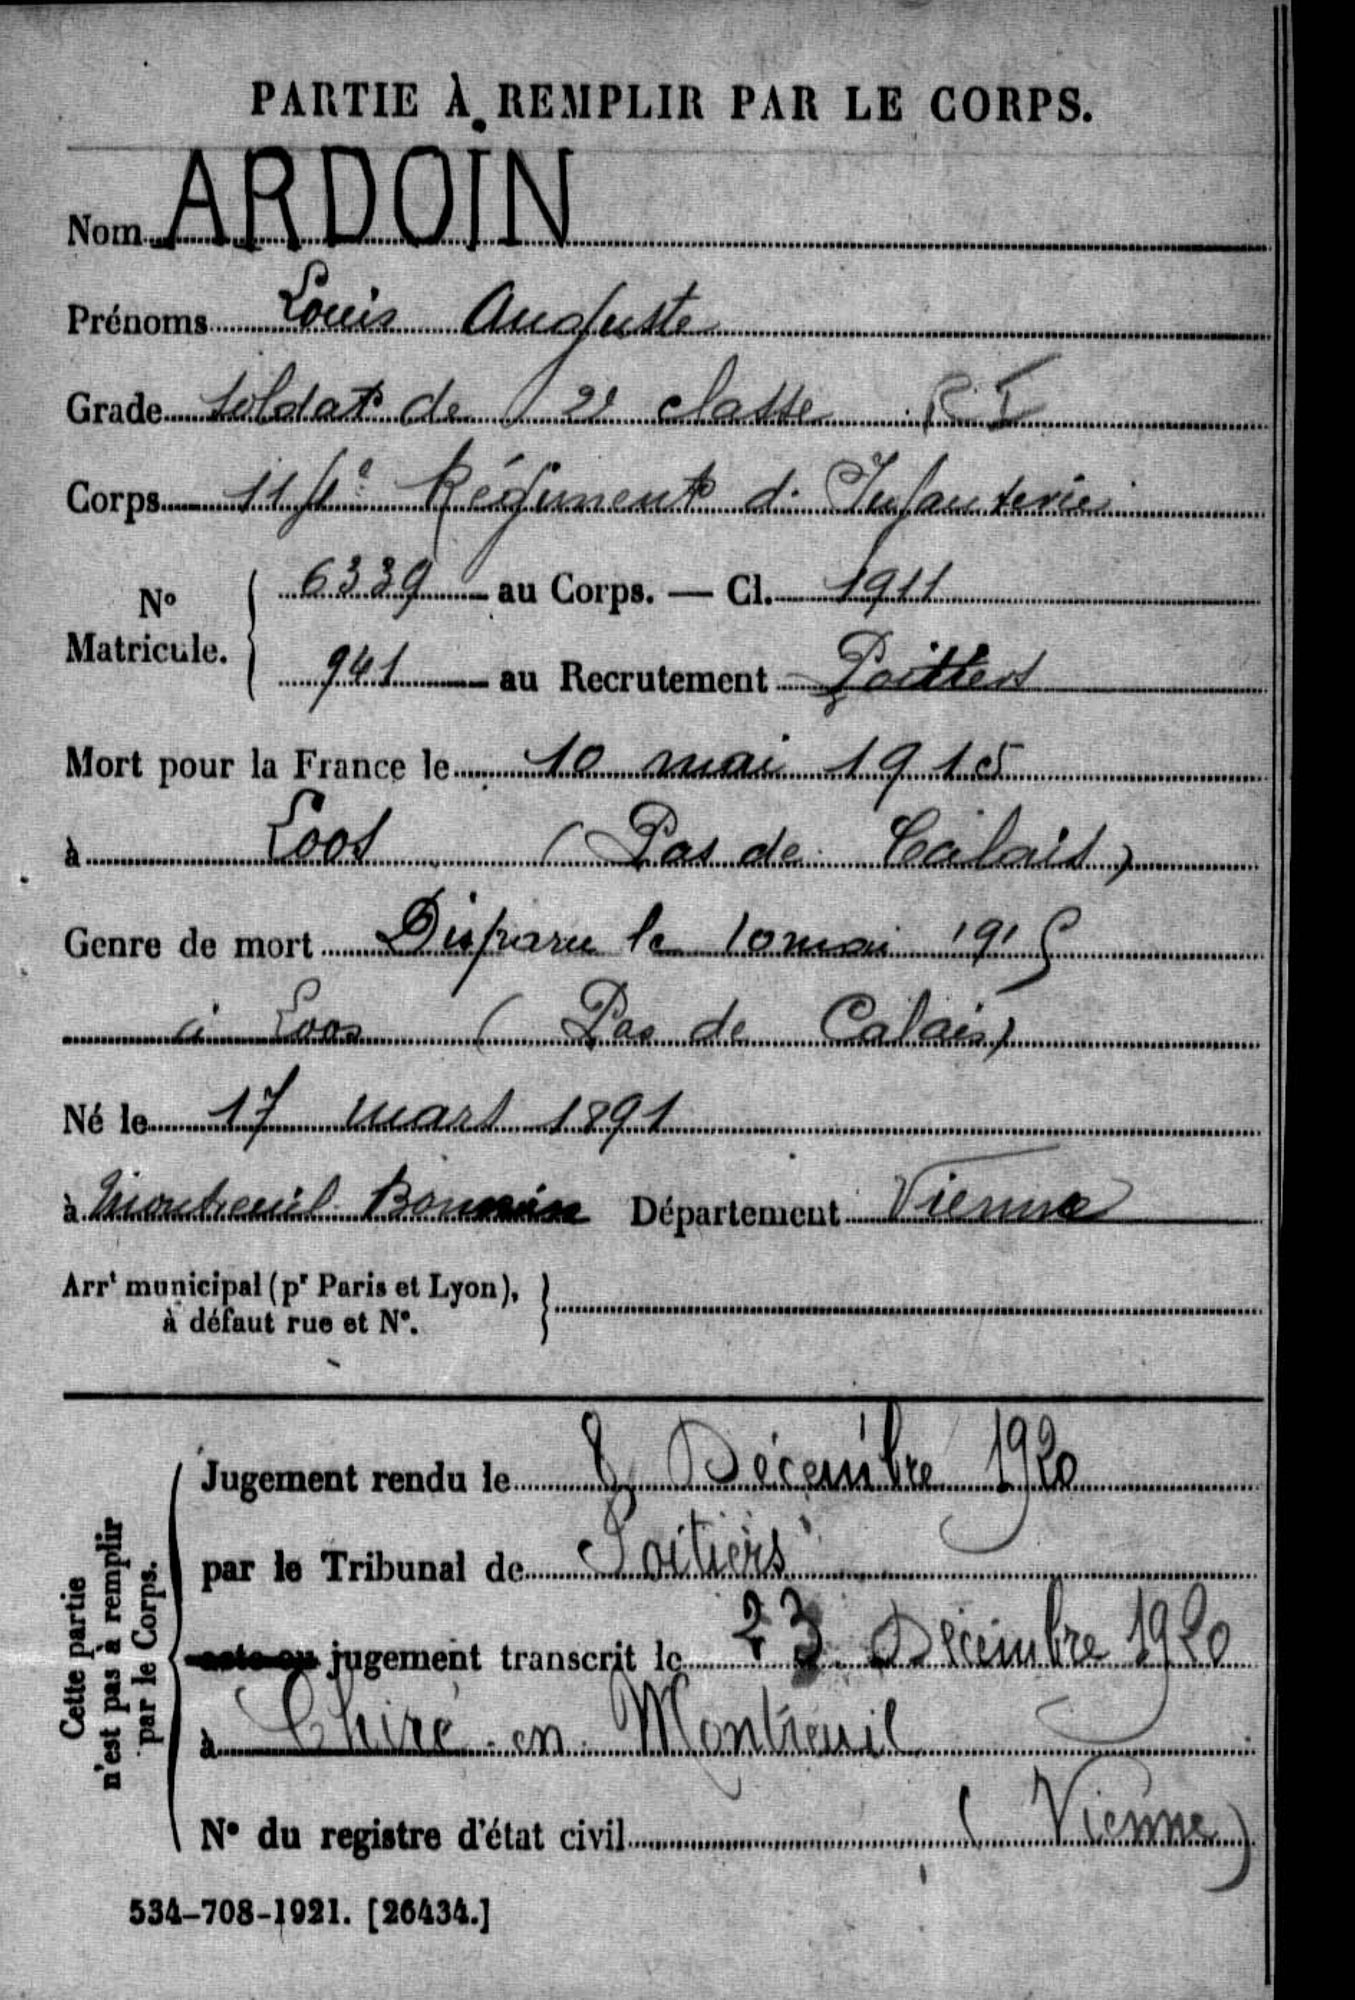 PARTIE À REMPLIR PAR LE CORPS.
Nom ARDOIN
Prénoms Louis Auguste
Grade Soldat de 2e classe R I
Corps 114e Régiment d'Infanterie
No Matricule. 6339 au Corps. — Cl. 1911
941 au Recrutement Poitiers
Mort pour la France le 10 mai 1915
à Loos (Pas de Calais)
Genre de mort Disparu le 10 mai 1915
à Loos (Pas de Calais)
Né le 17 mars 1891
à Montreuil Bonnin Département Vienne
Arrt municipal (pr Paris et Lyon),
à défaut rue et No.
Cette partie
n'est pas à remplir
par le Corps.
Jugement rendu le 8 Décembre 1920
par le Tribunal de Poitiers
acte ou jugement transcrit le 23 Décembre 1920
à Chiré-en-Montreuil
No du registre d'état civil (Vienne)
534-708-1921. [26434.]